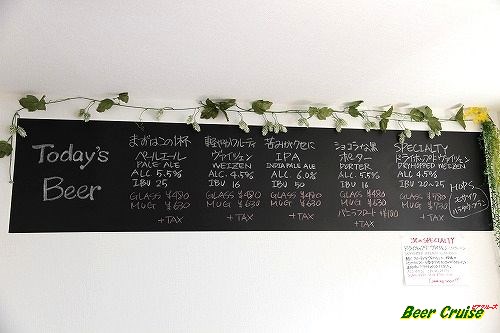 Today's
Beer
まずはこの1杯
ペールエール
PALE ALE
ALC 5.5%
IBU 25
GLASS ¥480
MUG ¥630
+TAX
軽やかフルーティ
ヴァイツェン
WEIZEN
ALC. 4.5%
IBU 16
GLASS ¥480
MUG ¥630
+TAX
苦みがクセに
IPA
INDIA PALE ALE
ALC. 6.0%
IBU 50
GLASS ¥480
MUG ¥630
+TAX
ショコラティな黒
ポーター
PORTER
ALC. 5.5%
IBU 16
GLASS ¥480
MUG ¥630
バニラフロート +¥100
+TAX
SPECIALTY
ドライホップドヴァイツェン
DRY-HOPPED WEIZEN
ALC 4.5%
IBU 20~25
GLASS
MUG
+TAX
HOPS
SPECIALTY
ビアクルーズ
Beer Cruise